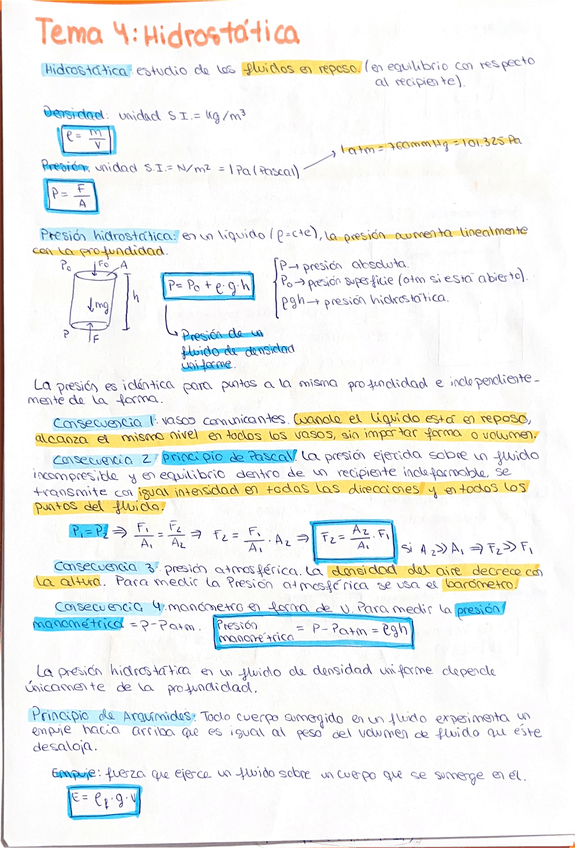 Tema 4: Hidrostática
Hidrostática: estudio de los fluidos en reposo. (en equilibrio con respecto
al recipiente).
Densidad: unidad S.I. = kg/m³
ρ = m/V
1 atm = 760 mmHg = 101.325 Pa
Presión, unidad S.I. = N/m² = 1 Pa (Pascal)
P = F/A
Presión hidrostática: en un líquido (ρ=cte), la presión aumenta linealmente
con la profundidad.
P₀ F₀ A
h
mg
P F
P = P₀ + ρ·g·h
P → presión absoluta.
P₀ → presión superficie (atm si está abierto).
ρgh → presión hidrostática.
Presión de un
fluido de densidad
uniforme.
La presión es idéntica para puntos a la misma profundidad e independiente-
mente de la forma.
Consecuencia 1: vasos comunicantes. Cuando el líquido está en reposo,
alcanza el mismo nivel en todos los vasos, sin importar forma o volumen.
Consecuencia 2: principio de Pascal. La presión ejercida sobre un fluido
incompresible y en equilibrio dentro de un recipiente indeformable, se
transmite con igual intensidad en todas las direcciones y en todos los
puntos del fluido.
P₁ = P₂ ⇒ F₁/A₁ = F₂/A₂ ⇒ F₂ = F₁/A₁ · A₂ ⇒ F₂ = A₂/A₁ · F₁ si A₂ >> A₁ ⇒ F₂ >> F₁
Consecuencia 3: presión atmosférica. La densidad del aire decrece con
la altura. Para medir la Presión atmosférica se usa el barómetro.
Consecuencia 4: manómetro en forma de U. Para medir la presión
manométrica = P - Patm.
Presión manométrica = P - Patm = ρgh
La presión hidrostática en un fluido de densidad uniforme depende
únicamente de la profundidad.
Principio de Arquímides: Todo cuerpo sumergido en un fluido experimenta un
empuje hacia arriba que es igual al peso del volumen de fluido que éste
desaloja.
Empuje: fuerza que ejerce un fluido sobre un cuerpo que se sumerge en él.
E = ρf · g · V